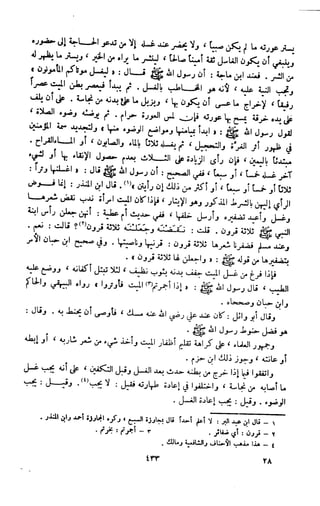 يستر عورته ما لم يكن صبياً ، ولا يحضر عند غسله إلا من تدعو الحاجة إلى حضوره
وينبغي أن يكون الغاسل ثقة أميناً صالحاً ، لينشر ما يراه من الخير ، ويستر ما يظهر له
من الشر . فعند ابن ماجة : أن رسول الله ﷺ قال : « ليغسل موتاكم المأمونون »
وتجب النية عليه ، لأنه هو المخاطب بالغسل . ثم يبدأ فيعصر بطن الميت عصراً
رفيقاً ، لإخراج ما عسى أن يكون بها ، ويزيل ما على بدنه من نجاسة . على أن يلف
على يده خرقة يمسح بها عورته فإن لمس العورة حرام . ثم يوضئه وضوء الصلاة ،
لقول رسول الله ﷺ : « ابدأن بميامنها ومواضع الوضوء منها » ولتجديد سمة المؤمنين
في ظهور أثر الغرة والتحجيل ، ثم يغسله ثلاثاً بالماء والصابون ، أو الماء القراح ،
مبتدئاً باليمين ، فإن رأى الزيادة على الثلاث بعدم حصول الإنقاء بها أو لشيء
آخر غسله خمساً ، أو سبعاً ، ففي الصحيح : أن رسول الله ﷺ قال : « اغسلنها وتراً :
ثلاثاً أو خمساً أو سبعاً ، أو أكثر من ذلك إن رأيتن »(١). قال ابن المنذر : إنما فوض
الرأي إليهن بالشرط المذكور وهو الإيتار ، فإذا كان الميت امرأة ندب نقض شعرها
وغسل وأعيد تضفيره وأرسل خلفها ، ففي حديث أم عطية : أنهن جعلن رأس ابنة
النبي ﷺ ثلاثة قرون . قلت : نقضنه وجعلنه ثلاثة قرون(٢)؟ قالت : نعم .
وعند مسلم فضفرنا شعرها ثلاثة قرون : قرنيها وناصيتها . وفي صحيح ابن حبان الأمر
بتضفيرها من قوله ﷺ : « واجعلن لها ثلاثة قرون » .
فإذا فرغ من غسل الميت جفف بدنه بثوب نظيف ، لئلا تبتل أكفانه ، ووضع عليه
الطيب ، قال رسول الله ﷺ : « إذا أجمرتم(٣) الميت فأوتروا » رواه البيهقي والحاكم
وابن حبان وصححاه .
وقال أبو وائل : كان عند علي رضي الله عنه مسك ، فأوصى أن يحنط به . وقال :
هو فضل حنوط رسول الله ﷺ .
وجمهور العلماء ، على كراهة تقليم أظفار الميت وأخذ شيء من شعر شاربه ، أو إبطه
أو عانته ، وجوز ذلك ابن حزم .
واتفقوا فيما إذا خرج من بطنه حدث بعد الغسل وقبل التكفين ، على أنه يجب غسل
ما أصابه من نجاسة ، واختلفوا في إعادة طهارته فقيل : لا يجب(٤). وقيل : يجب
الوضوء . وقيل : يجب إعادة الغسل .
١ - قال ابن عبد البر : لا أعلم أحداً قال بمجاوزة السبع ، وكره المجاوزة أحمد وابن المنذر .
٢ - قرون : أي ضفائر . ٣ - أجمرتم : بخرتم .
٤ - هذا مذهب الأحناف والشافعية ومالك .
٤٣٣
٢٨